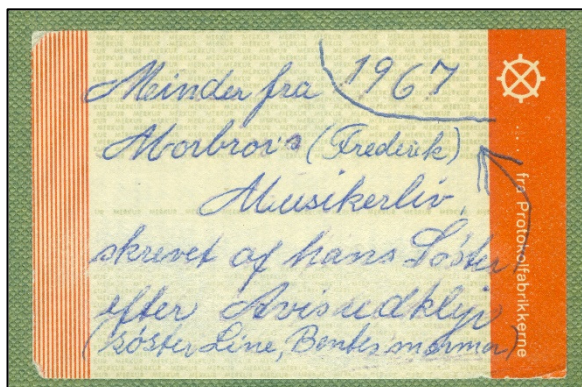 Meinder fra 1967
Morbrors (Frederik)
Musikerliv,
skrevet af hans Søster
efter Avisudklip
(søster Line, Bentes mormor)
.... fra Protokolfabrikkerne